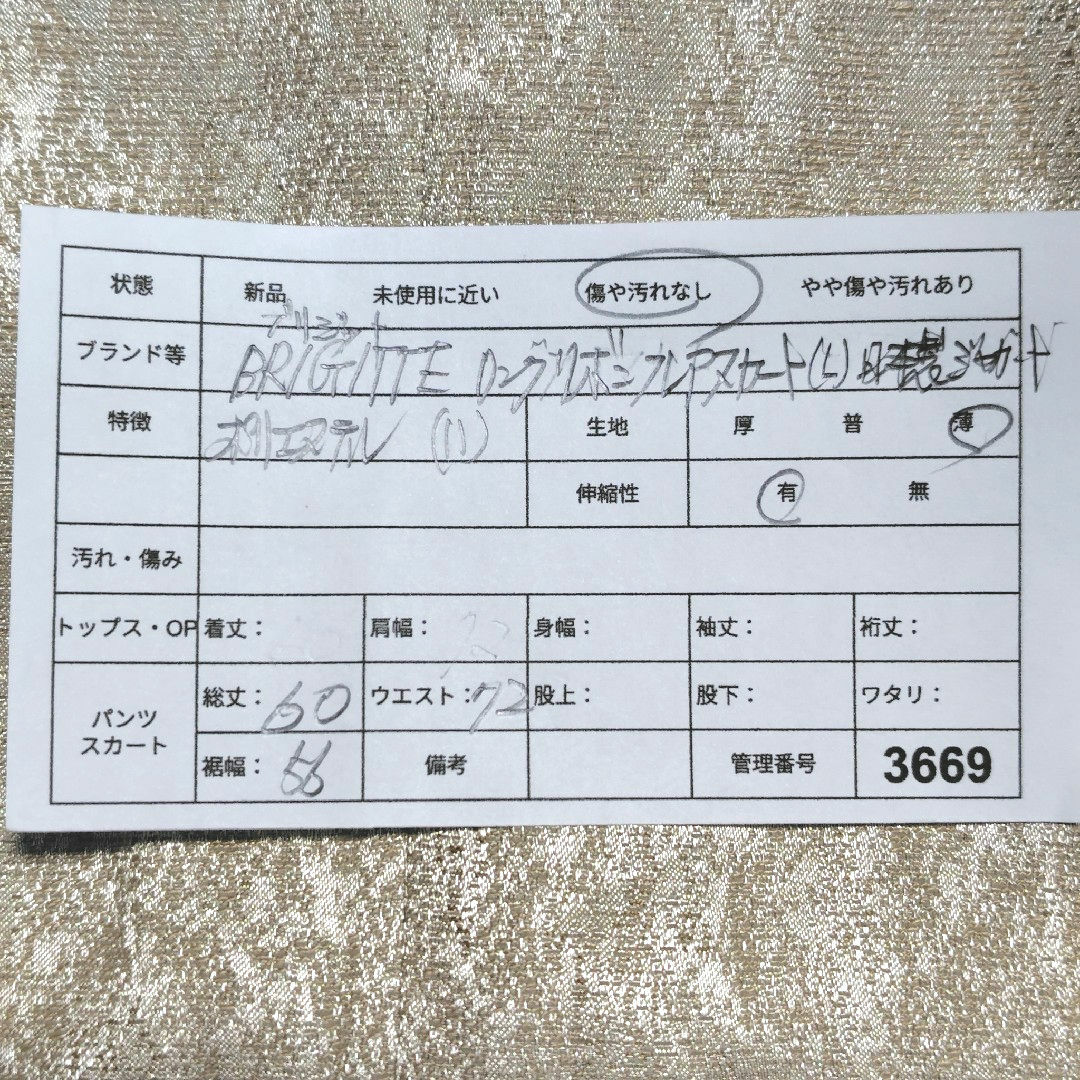 状態 新品 未使用に近い 傷や汚れなし やや傷や汚れあり
ブリジット
ブランド等 BRIGITTE ロングリボンフレアスカート(L) 日本製 ジャガード
特徴 ポリエステル 生地 厚 普 薄
伸縮性 有 無
汚れ・傷み
トップス・OP 着丈: 肩幅: 身幅: 袖丈: 裄丈:
パンツ スカート 総丈:60 ウエスト:72 股上: 股下: ワタリ:
裾幅: 備考 管理番号 3669